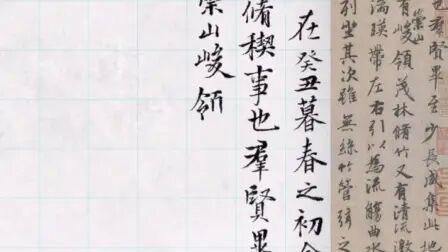 也羣賢畢至少長咸集此地
崇山
有峻領茂林脩竹又有清流激
湍暎帶左右引以為流觴曲水
列坐其次雖無絲竹管弦之
在癸丑暮春之初
脩禊事也羣賢畢
崇山峻領